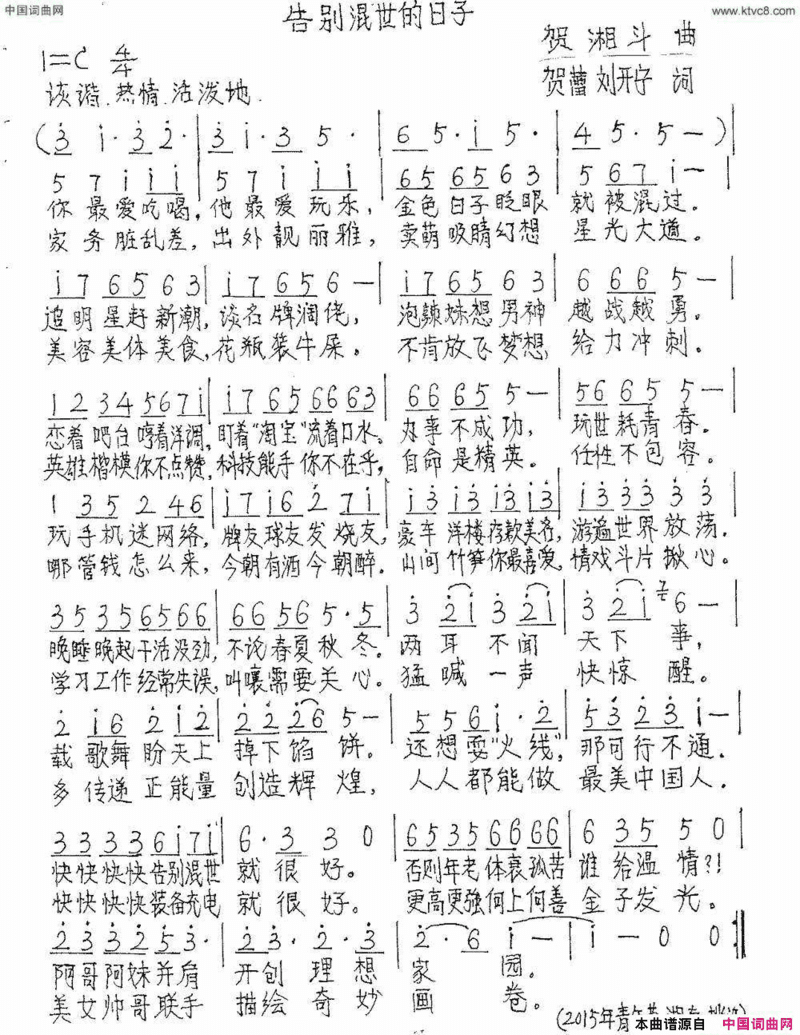 中国词曲网
www.ktvc8.com
告别混世的日子
1=C 4/4
贺湘斗 曲
诙谐.热情.活泼地.
贺蕾 刘开宇 词
(3 i· 3 2· | 3 i· 3 5· | 6 5· i 5· | 4 5· 5 — )|
5 7 i i i i | 5 7 i i i i | 6 5 6 5 6 3 | 5 6 7 i — |
你最爱吃喝,他最爱玩乐,金色日子眨眼就被混过.
家务脏乱差,出外靓丽雅,卖萌吸睛幻想星光大道.
i 7 6 5 6 3 | i 7 6 5 6 — | i 7 6 5 6 3 | 6 6 6 5 — |
追明星赶新潮,谈名牌阔佬,泡辣妹想男神越战越勇.
美容美体美食,花瓶装牛屎.不肯放飞梦想,给力冲刺.
1 2 3 4 5 6 7 i | i 7 6 5 6 6 6 3 | 6 6 6 5 5 — | 5 6 6 5 5 — |
恋着吧台哼着洋调,盯着“淘宝”流着口水.办事不成功,玩世耗青春.
英雄楷模你不点赞,科技能手你不在乎,自命是精英.任性不包容.
1 3 5 2 4 6 | i 7 i 6 2 7 i | i 3 i 3 i 3 i 3 | i 3 3 3 3 3 |
玩手机迷网络,牌友球友发烧友,豪车洋楼存款美名,游遍世界放荡.
哪管钱怎么来,今朝有酒今朝醉.山间竹笋你最喜爱,情戏斗片揪心.
3 5 3 5 6 5 6 6 | 6 6 5 6 5· 5 | 3 2 i 3 2 i | 3 2 i 6 — |
晚睡晚起干活没劲,不论春夏秋冬.两耳不闻天下事,
学习工作经常失误,叫嚷需要关心.猛喊一声快惊醒.
2 i 6 2 i 2 | 2 2 2 6 5 — | 5 5 6 i· 2 | 5 3 2 3 i — |
载歌舞盼天上掉下馅饼.还想耍“火线”,那可行不通.
多传递正能量创造辉煌,人人都能做最美中国人.
3 3 3 3 6 i 7 i | 6· 3 3 0 | 6 5 3 5 6 6 6 6 | 6 3 5 5 0 |
快快快快告别混世就很好.否则年老体衰孤苦谁给温情?!
快快快快装备充电就很好.更高更强何上何善金子发光.
2 3 3 2 5 3· | 2 3· 2· 3 | 2· 6 i — | i — 0 0 :||
阿哥阿妹并肩开创理想家园.
美女帅哥联手描绘奇妙画卷.
(2015年青
本曲谱源自 中国词曲网